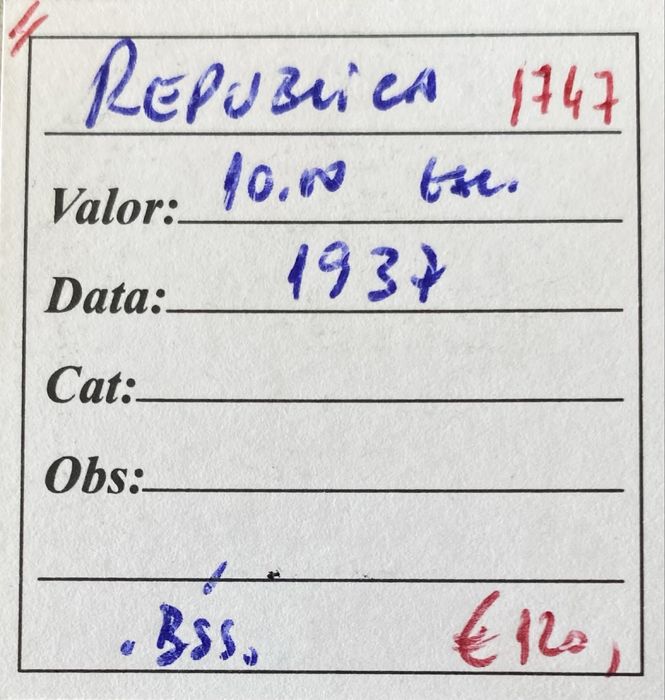 REPUBLICA 1747
Valor: 10.00 Esc.
Data: 1937
Cat:
Obs:
.BSS. €120,